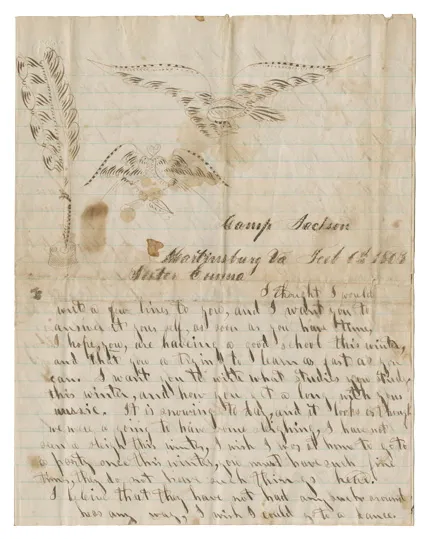 Camp Jackson
Martinsburg Va Feb 6th 186
Sister Emma
I thought I would
write a few lines to you, and I want you to
answer it your self, as soon as you have time,
I hope you are having a good school this winter,
and that you a trying to learn as fast as you
can. I want you to write what studies you study
this winter, and how you get a long with your
music. It is snowing to day, and it looks as though
we were a going to have some sleighing, I have not
seen a sleigh this winter, I wish I was at home to go to
a party once this winter, you must have such fine
times, they do not have such things as here.
I believe that they have not had any such around
here any way, I wish I could go to a dance.